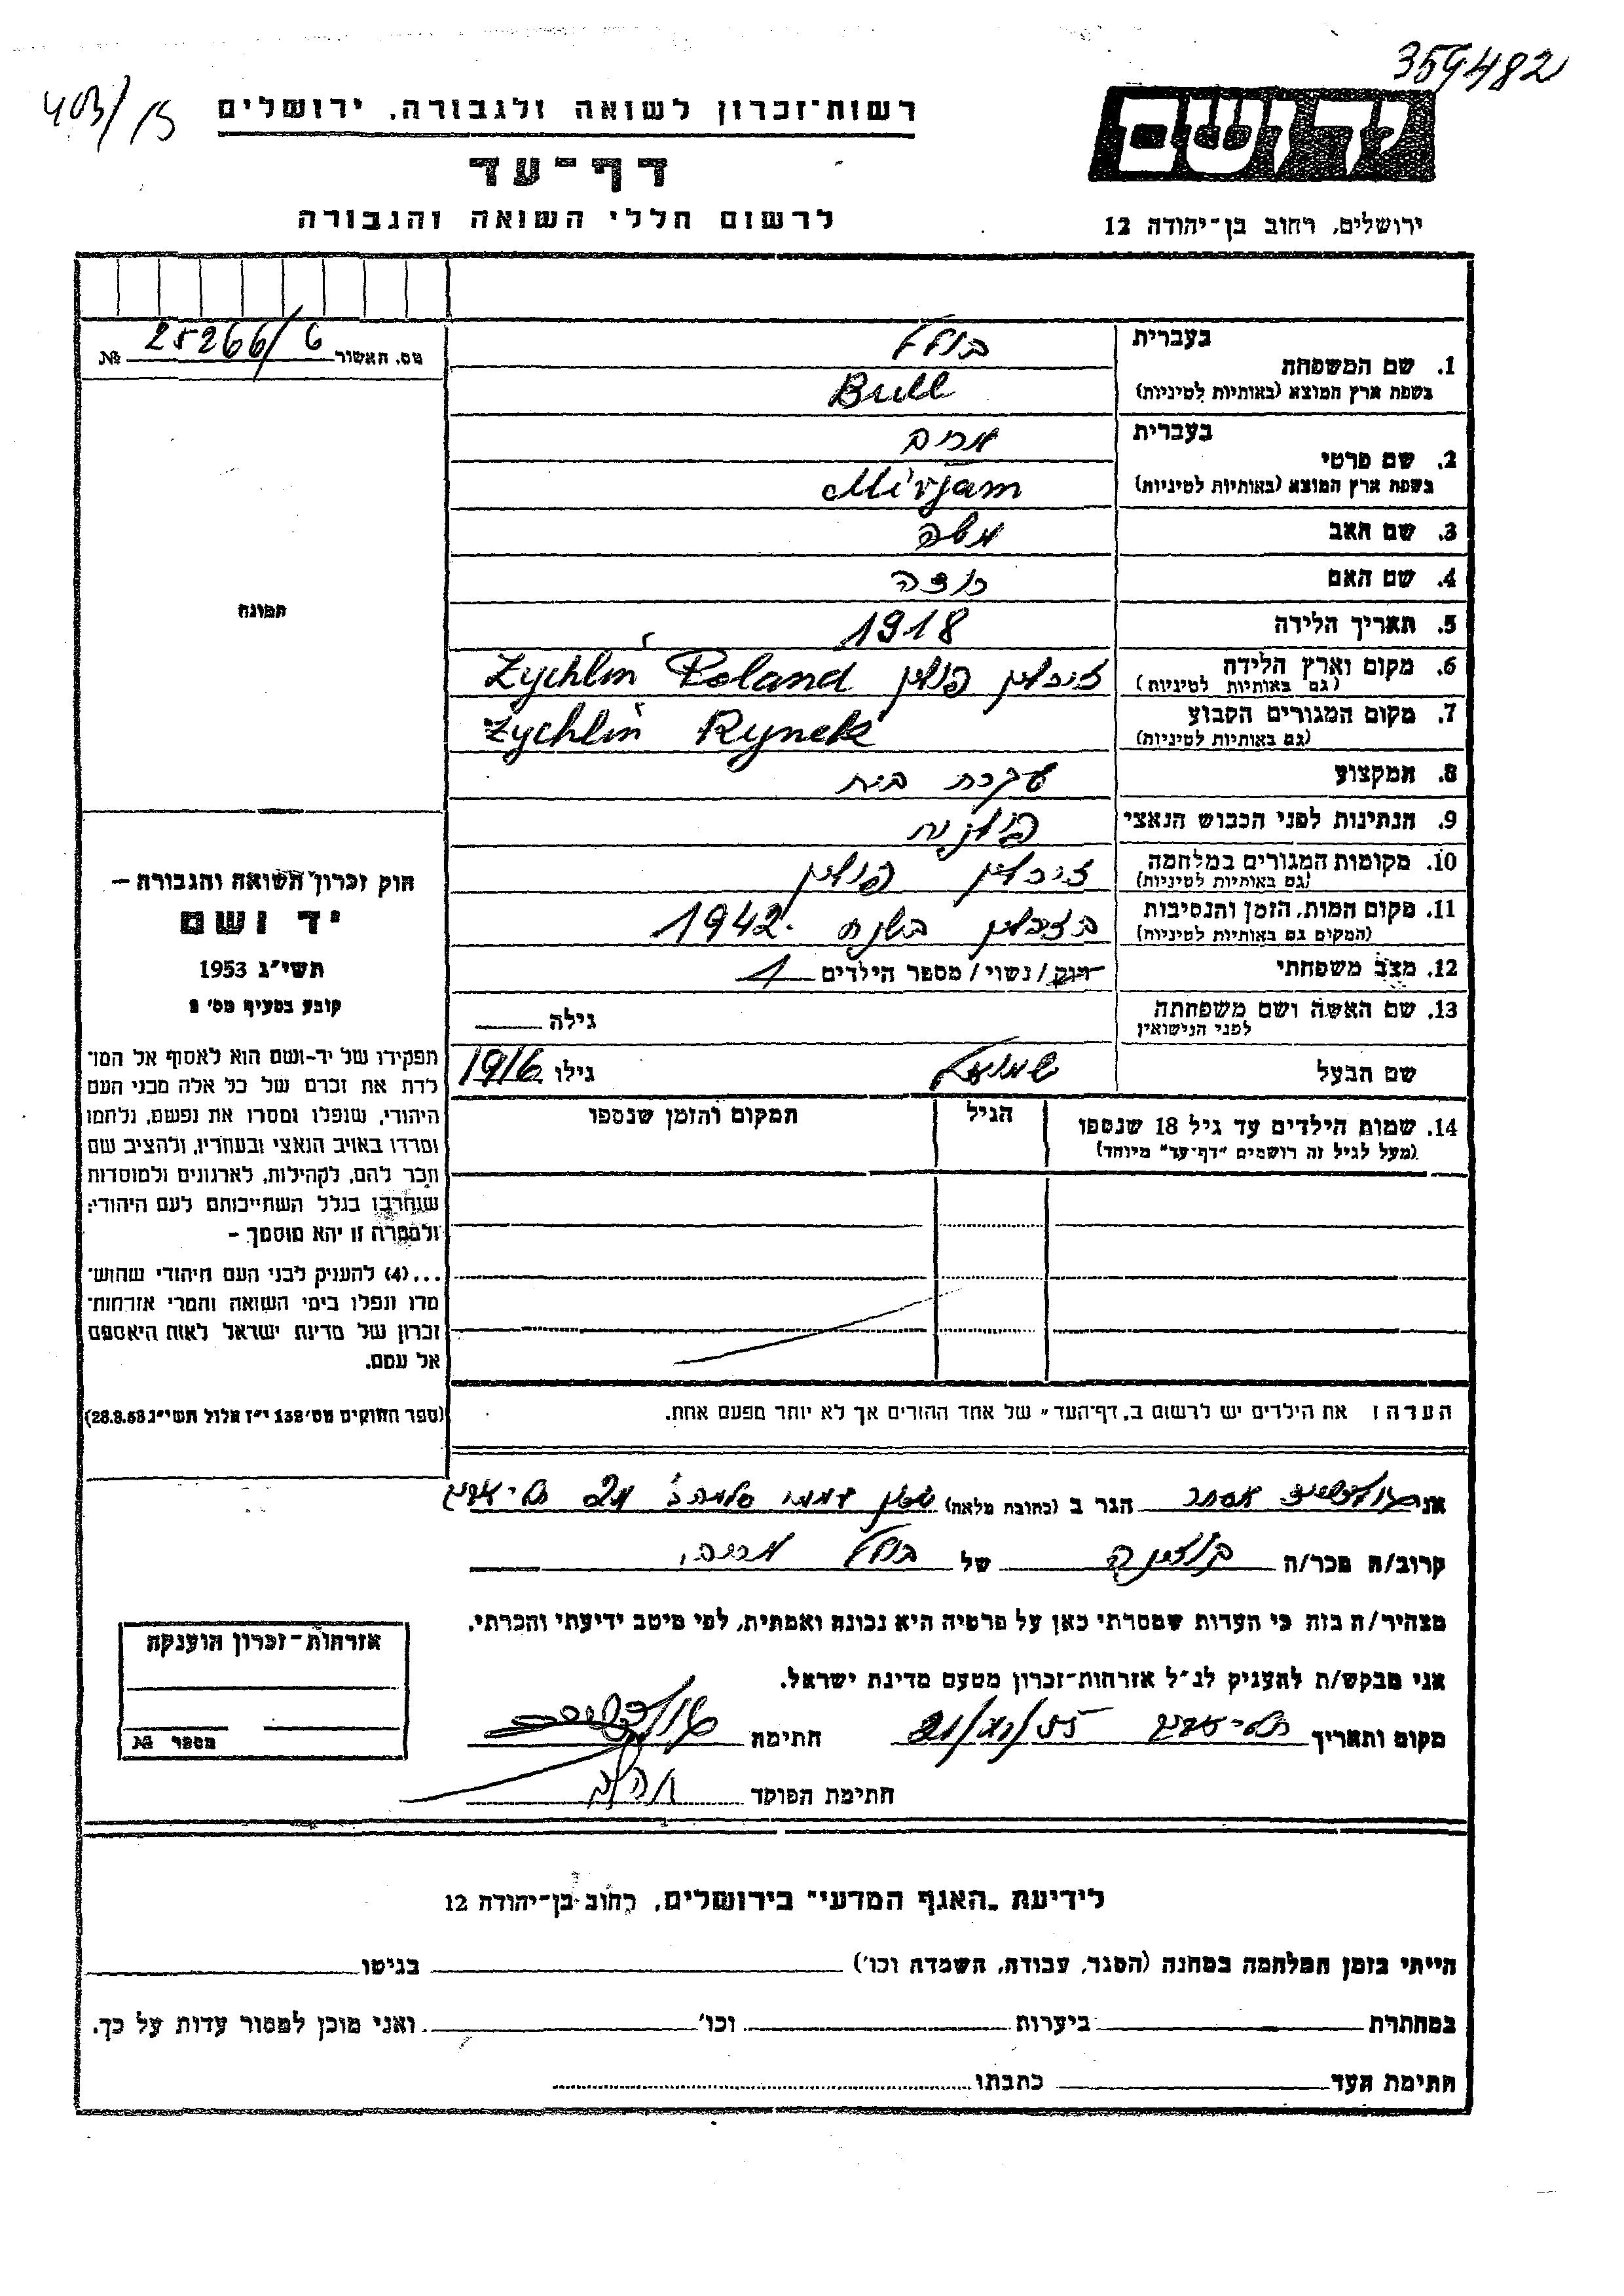 359482
403/15
רשות־זכרון לשואה ולגבורה. ירושלים
דף־עד
לרשום חללי השואה והגבורה
ידושם
ירושלים, רחוב בן־יהודה 12
מס. האשור 25266/6 №
בעברית בולל
1. שם המשפחה
בשפת ארץ המוצא (באותיות לטיניות) Bull
בעברית מרים
2. שם פרטי
בשפת ארץ המוצא (באותיות לטיניות) Mirjam
3. שם האב משה
4. שם האם
5. תאריך הלידה 1918
6. מקום וארץ הלידה זיכלין פולין Żychlin Poland
(גם באותיות לטיניות)
7. מקום המגורים הקבוע Żychlin Rynek
(גם באותיות לטיניות)
8. המקצוע עקרת בית
9. הנתינות לפני הכבוש הנאצי פולניה
10. מקומות המגורים במלחמה זיכלין פולין
(גם באותיות לטיניות)
11. מקום המות, הזמן והנסיבות בזיכלין בשנת 1942
(המקום גם באותיות לטיניות)
12. מצב משפחתי רווק/נשוי/מספר הילדים 1
13. שם האשה ושם משפחתה
לפני הנישואין
גילה
שם הבעל שמואל גילו 1916
14. שמות הילדים עד גיל 18 שנספו
(מעל לגיל זה רושמים "דף־עד" מיוחד)
הגיל
המקום והזמן שנספו
הערה: את הילדים יש לרשום ב„דף־העד" של אחד ההורים אך לא יותר מפעם אחת.
תמונה
חוק זכרון השואה והגבורה —
יד ושם
תשי"ג 1953
קובע בסעיף מס' 2
תפקידו של יד-ושם הוא לאסוף אל המו־
לדת את זכרם של כל אלה מבני העם
היהודי, שנפלו ומסרו את נפשם, נלחמו
ומרדו באויב הנאצי ובעוזריו, ולהציב שם
וזכר להם, לקהילות, לארגונים ולמוסדות
שנחרבו בגלל השתייכותם לעם היהודי;
ולמטרה זו יהא מוסמך —
...(4) להעניק לבני העם היהודי שהוש־
מדו ונפלו בימי השואה והמרי אזרחות־
זכרון של מדינת ישראל לאות היאספם
אל עמם.
(ספר החוקים מס' 132 י"ז אלול תשי"ג 28.8.53)
אני אסתר הגר ב (כתובת מלאה) שכון סלמה ג' תל־אביב
קרוב/ה מכר/ה של בולל מרים
מצהיר/ה בזה כי העדות שמסרתי כאן על פרטיה היא נכונה ואמתית, לפי מיטב ידיעתי והכרתי.
אני מבקש/ת להעניק לנ"ל אזרחות־זכרון מטעם מדינת ישראל.
מקום ותאריך תל־אביב חתימה
חתימת הפוקד
אזרחות־זכרון הוענקה
מספר №
לידיעת „האגף המדעי" בירושלים, רחוב בן־יהודה 12
הייתי בזמן המלחמה במחנה (הסגר, עבודה, השמדה וכו') בגיטו
במחתרת ביערות וכו' ואני מוכן למסור עדות על כך.
חתימת העד כתבתו